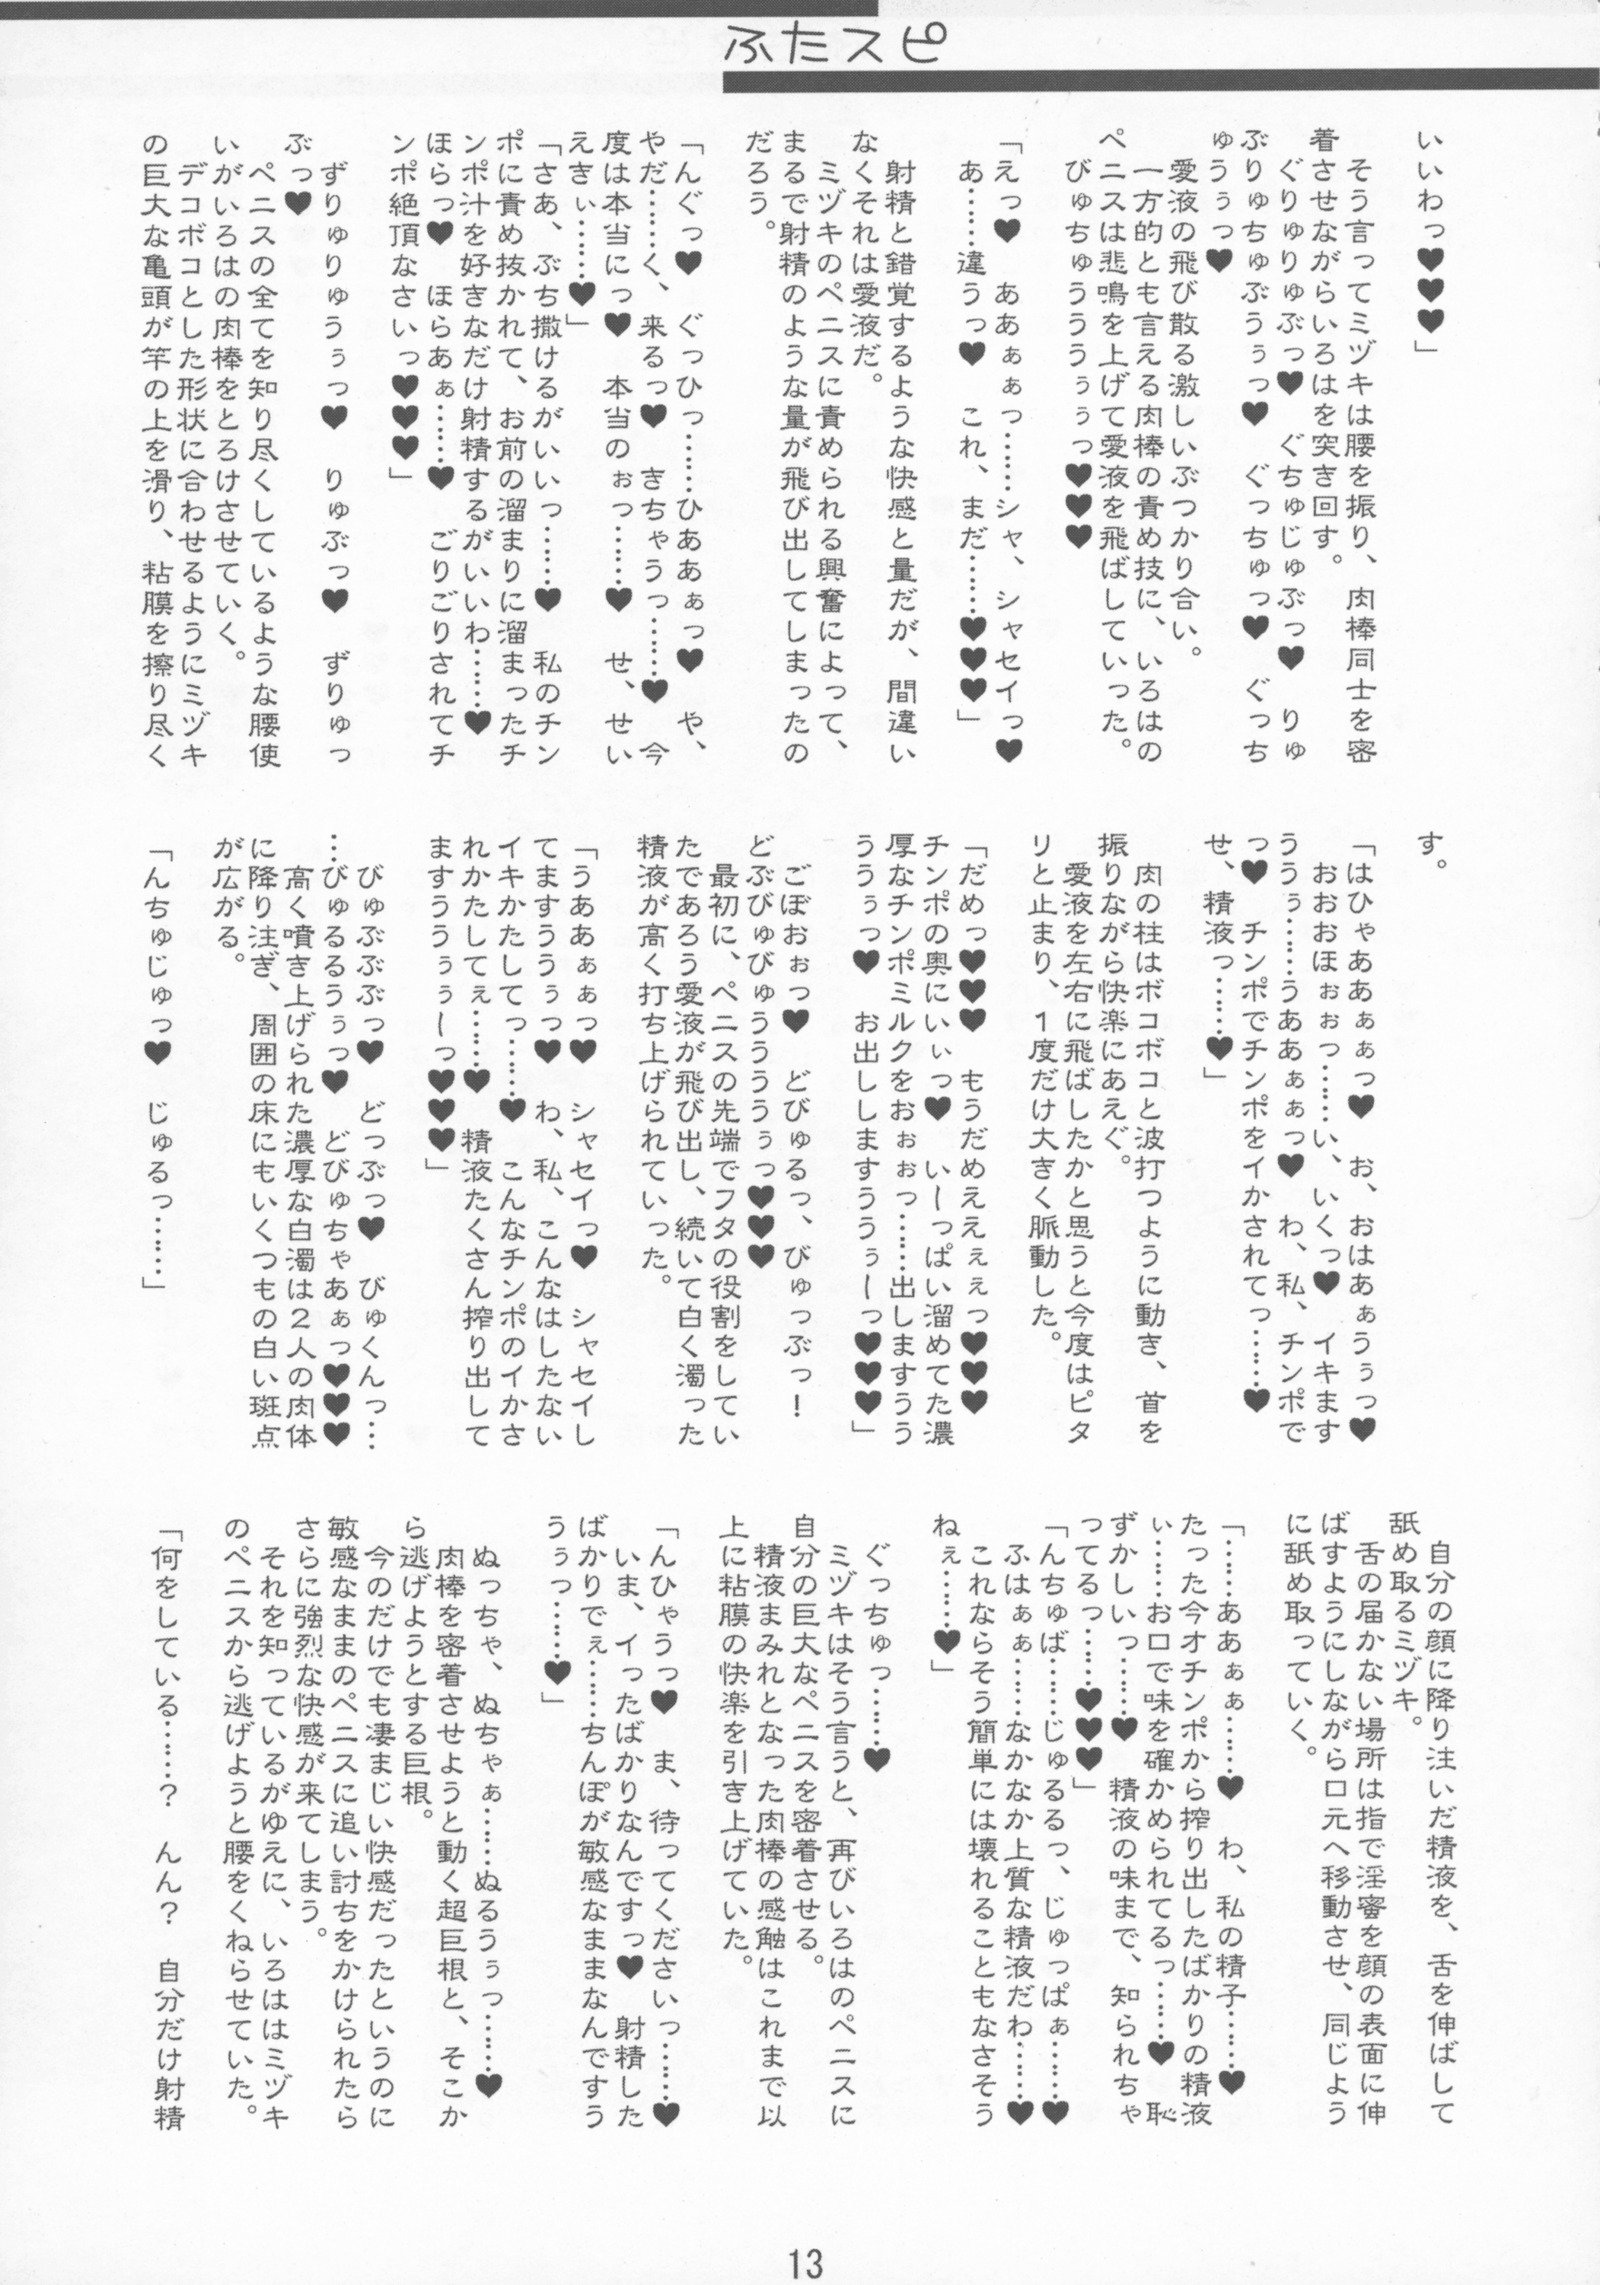 ふたスピ
いいわっ♥♥♥」
そう言ってミヅキは腰を振り、肉棒同士を密
着させながらいろはを突き回す。
ぐりゅりゅぶっ♥　ぐちゅじゅぶっ♥　りゅ
ぶりゅちゅぶうぅっ♥　ぐっちゅっ♥　ぐっち
ゅうぅっ♥
愛液の飛び散る激しいぶつかり合い。
一方的とも言える肉棒の責め技に、いろはの
ペニスは悲鳴を上げて愛液を飛ばしていった。
びゅちゅうううぅぅっ♥♥♥
「えっ♥　ああぁぁっ……シャ、シャセイっ♥
あ……違うっ♥　これ、まだ……♥♥♥」
射精と錯覚するような快感と量だが、間違い
なくそれは愛液だ。
ミヅキのペニスに責められる興奮によって、
まるで射精のような量が飛び出してしまったの
だろう。
「んぐっ♥　ぐっひっ……ひああぁっ♥　や、
やだ……く、来るっ♥　きちゃうっ……♥　今
度は本当にっ♥　本当のぉっ……♥　せ、せい
えきぃ……♥」
「さあ、ぶち撒けるがいいっ……♥　私のチン
ポに責め抜かれて、お前の溜まりに溜まったチ
ンポ汁を好きなだけ射精するがいいわ……♥
ほらっ♥　ほらあぁ……♥　ごりごりされてチ
ンポ絶頂なさいっ♥♥♥」
ずりゅりゅうぅっ♥　りゅぶっ♥　ずりゅっ
ぶっ♥
ペニスの全てを知り尽くしているような腰使
いがいろはの肉棒をとろけさせていく。
デコボコとした形状に合わせるようにミヅキ
の巨大な亀頭が竿の上を滑り、粘膜を擦り尽く
す。
「はひゃああぁぁっ♥　お、おはあぁうぅっ♥
おおおほぉぉっ……い、いくっ♥　イキます
ううぅ……うああぁぁっ♥　わ、私、チンポで
っ♥　チンポでチンポをイかされてっ……♥
せ、精液っ……♥」
肉の柱はボコボコと波打つように動き、首を
振りながら快楽にあえぐ。
愛液を左右に飛ばしたかと思うと今度はピタ
リと止まり、１度だけ大きく脈動した。
「だめっ♥♥♥　もうだめええぇぇっ♥♥♥
チンポの奥にいぃっ♥　い～っぱい溜めてた濃
厚なチンポミルクをおぉぉっ……出しますうう
ううぅっ♥　お出ししますううぅーっ♥♥♥」
ごぼおぉっ♥　どびゅるっ、びゅっぶっ！
どぶびゅびゅうううぅっ♥♥♥
最初に、ペニスの先端でフタの役割をしてい
たであろう愛液が飛び出し、続いて白く濁った
精液が高く打ち上げられていった。
「うああぁぁっ♥　シャセイっ♥　シャセイし
てますううぅっ♥　わ、私、こんなはしたない
イキかたしてっ……♥　こんなチンポのイかさ
れかたしてぇ……♥　精液たくさん搾り出して
ますううぅぅーっ♥♥♥」
びゅぶぶぶっ♥　どっぶっ♥　びゅくんっ…
…びゅるるうぅっ♥　どびゅちゃあぁっ♥♥♥
高く噴き上げられた濃厚な白濁は２人の肉体
に降り注ぎ、周囲の床にもいくつもの白い斑点
が広がる。
「んちゅじゅっ♥　じゅるっ……」
自分の顔に降り注いだ精液を、舌を伸ばして
舐め取るミヅキ。
舌の届かない場所は指で淫審を顔の表面に伸
ばすようにしながら口元へ移動させ、同じよう
に舐め取っていく。
「……ああぁぁ……♥　わ、私の精子……♥
たった今オチンポから搾り出したばかりの精液
ぃ……お口で味を確かめられてるっ……♥　恥
ずかしいっ……♥　精液の味まで、知られちゃ
ってるっ……♥♥♥」
「んちゅば……じゅるるっ、じゅっぱぁ……♥
ふはぁぁ……なかなか上質な精液だわ……♥
これならそう簡単には壊れることもなさそう
ねぇ……♥」
ぐっちゅっ……♥
ミヅキはそう言うと、再びいろはのペニスに
自分の巨大なペニスを密着させる。
精液まみれとなった肉棒の感触はこれまで以
上に粘膜の快楽を引き上げていた。
「んひゃうっ♥　ま、待ってくださいっ……♥
いま、イったばかりなんですっ♥　射精した
ばかりでぇ……ちんぽが敏感なままなんですう
うぅっ……♥」
ぬっちゃ、ぬちゃぁ……ぬるうぅっ……♥
肉棒を密着させようと動く超巨根と、そこか
ら逃げようとする巨根。
今のだけでも凄まじい快感だったというのに
敏感なままのペニスに追い討ちをかけられたら
さらに強烈な快感が来てしまう。
それを知っているがゆえに、いろははミヅキ
のペニスから逃げようと腰をくねらせていた。
「何をしている……？　んん？　自分だけ射精
13